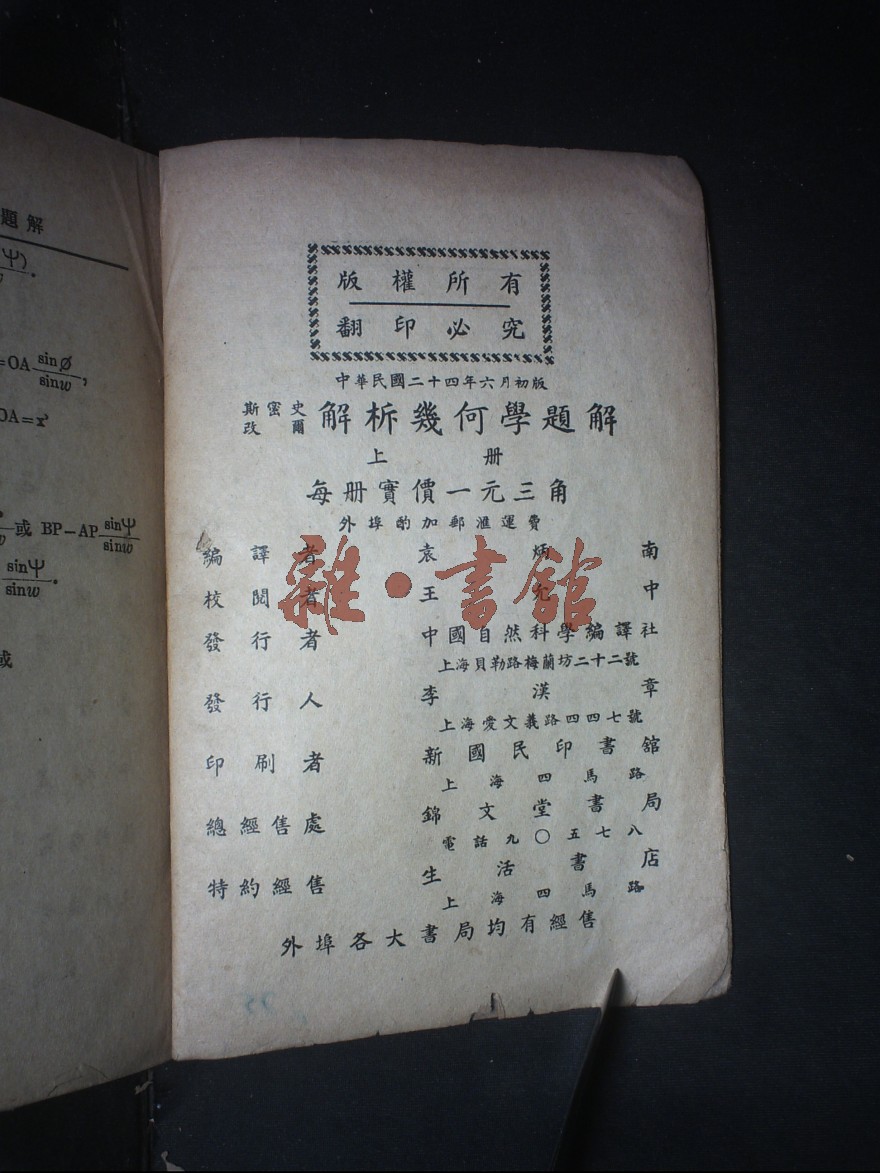 題解
Ψ)
=OA sinø/sinw,
OA=x'
或 BP–AP sinΨ/sinw
sinΨ/sinw.
或
版權所有
翻印必究
中華民國二十四年六月初版
斯密史改爾 解析幾何學題解
上册
每册實價一元三角
外埠酌加郵滙運費
編譯者 袁炳南
校閱者 王允中
發行者 中國自然科學編譯社
上海貝勒路梅蘭坊二十二號
發行人 李漢章
上海愛文義路四四七號
印刷者 新國民印書館
上海四馬路
總經售處 錦文堂書局
電話九〇五七八
特約經售 生活書店
上海四馬路
外埠各大書局均有經售
雜·書館